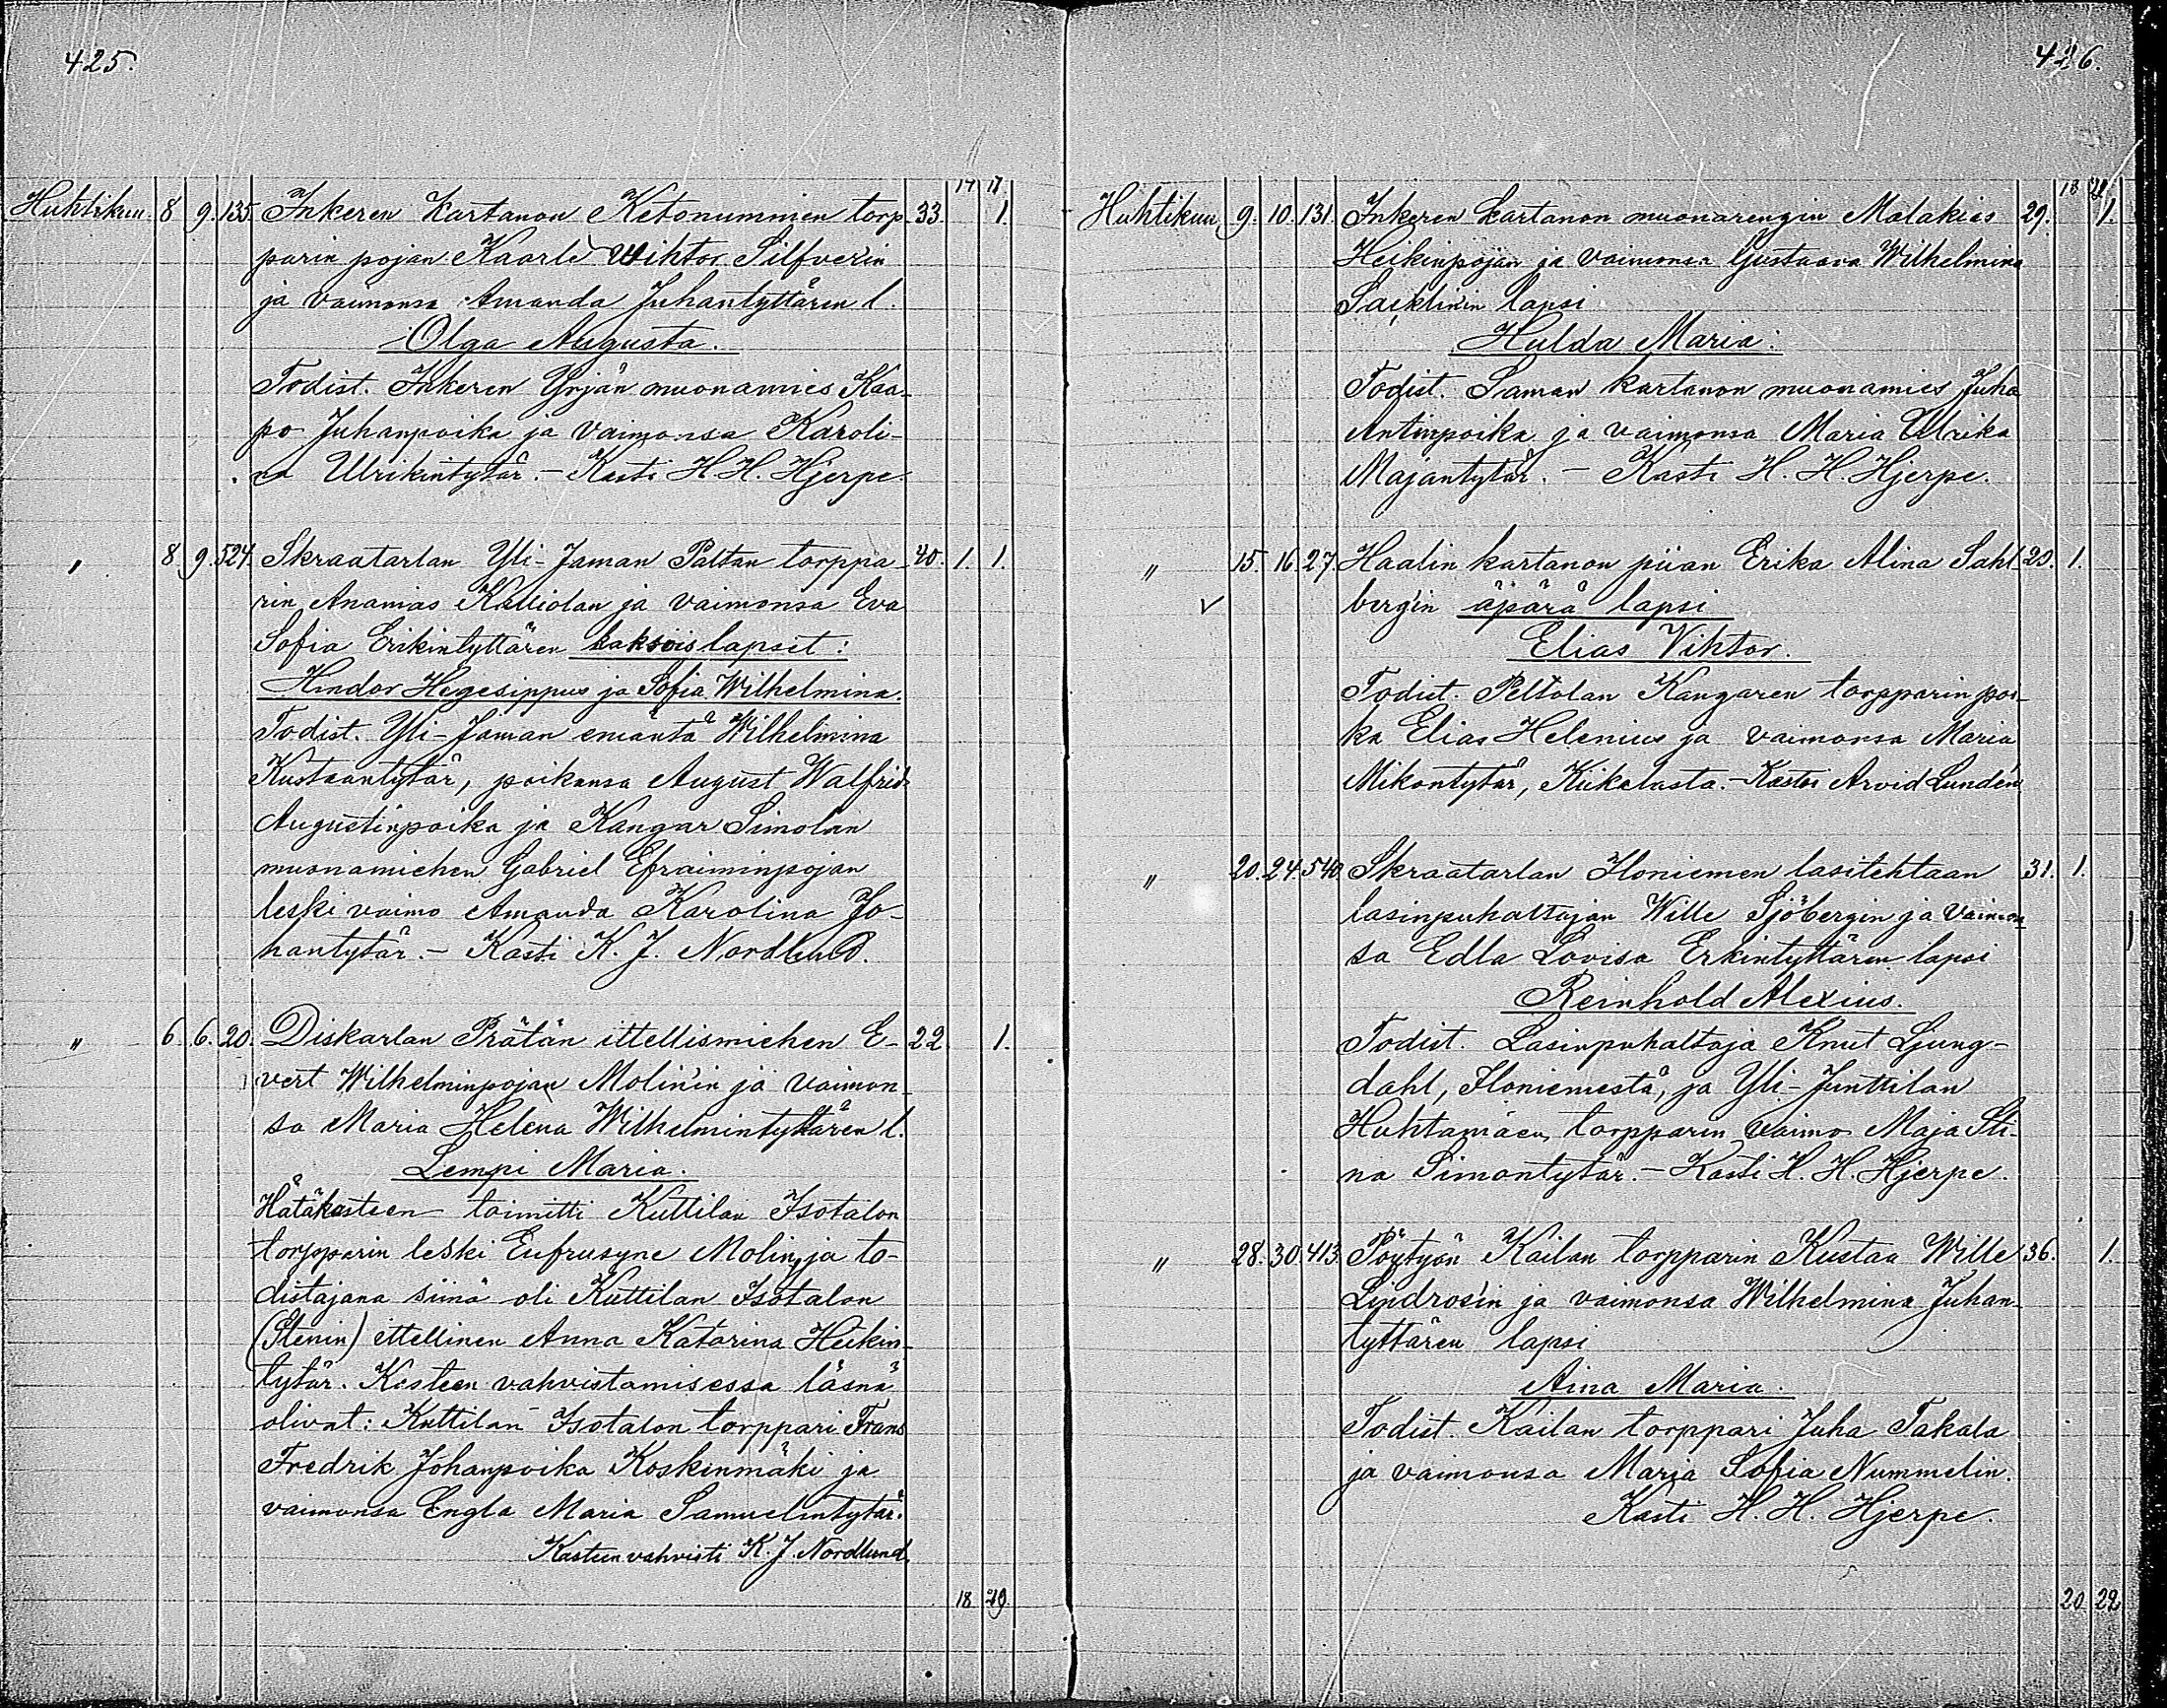 425.
14 17
Huhtikuu. 8 9. 135. Inkeren Kartanon Ketonummen torp- 33. 1.
parin pojan Kaarle Wihtor Silfverin
ja vaimonsa Amanda Juhantyttären l.
Olga Augusta.
Todist. Inkeren Yrjän muonamies Kaa-
po Juhanpoika ja vaimonsa Karoli-
na Ulrikintytär. - Kasti H. H. Hjerpe.
" 8 9. 524. Skraatarlan Yli-Jaman Paltan torppa- 40. 1. 1.
rin Ananias Kalliolan ja vaimonsa Eva
Sofia Erikintyttären kaksoislapsit:
Hindor Hegesippus ja Sofia Wilhelmina.
Todist. Yli-Jaman emäntä Wilhelmina
Kustaantytär, poikansa August Walfrid
Augustinpoika ja Kangar Simolan
muonamiehen Gabriel Efraiminpojan
leski vaimo Amanda Karolina Jo-
hantytär. - Kasti K. J. Nordlund.
" 6 6. 20. Diskarlan Prätän ittellismiehen E- 22. 1.
vert Wilhelminpojan Molin'in ja vaimon-
sa Maria Helena Wilhelmintyttären l.
Lempi Maria.
Hätäkasteen toimitti Kuttilan Isotalon
torpparin leski Eufrusyne Molin, ja to-
distajana siinä oli Kuttilan Isotalon
(Stenin) ittellinen Anna Katarina Heikin-
tytär. Kasteen vahvistamisessa läsnä
olivat: Kuttilan Isotalon torppari Frans
Fredrik Johanpoika Koskinmäki ja
vaimonsa Engla Maria Samuelintytär.
Kasteen vahvisti K. J. Nordlund.
18 20.
426.
18
Huhtikuu 9. 10. 131. Inkeren kartanon muonarengin Malakias 29. 1.
Heikinpojan ja vaimonsa Gustaava Wilhelmina
lapsi
Hulda Maria.
Todist. Saman kartanon muonamies Juha
Antinpoika ja vaimonsa Maria Ulrika
Majantytär. - Kasti H. H. Hjerpe.
" 15. 16. 27. Haalin kartanon piian Erika Alina Sahl- 20. 1.
bergin äpärä lapsi
Elias Vihtor.
Todist. Peltolan Kangaren torpparin poi-
ka Elias Helenius ja vaimonsa Maria
Mikontytär, Kiikalasta. - Kastoi Arvid Lundén
" 20. 24. 540. Skraatarlan Iloniemen lasitehtaan 31. 1.
lasinpuhaltajan Wille Sjöbergin ja vaimon-
sa Edla Lovisa Erkintyttären lapsi
Reinhold Alexius.
Todist. Lasinpuhaltaja Knut Ljung-
dahl, Iloniemestä, ja Yli-Junttilan
Huhtamäen torpparin vaimo Maja Sti-
na Simontytär. - Kasti H. H. Hjerpe.
" 28. 30. 413. Pöytyän Kailan torpparin Kustaa Wille 36. 1.
Lindrosin ja vaimonsa Wilhelmina Juhan-
tyttären lapsi
Aina Maria.
Todist. Kailan torppari Juha Takala
ja vaimonsa Maria Sofia Nummelin.
Kasti H. H. Hjerpe.
20 22